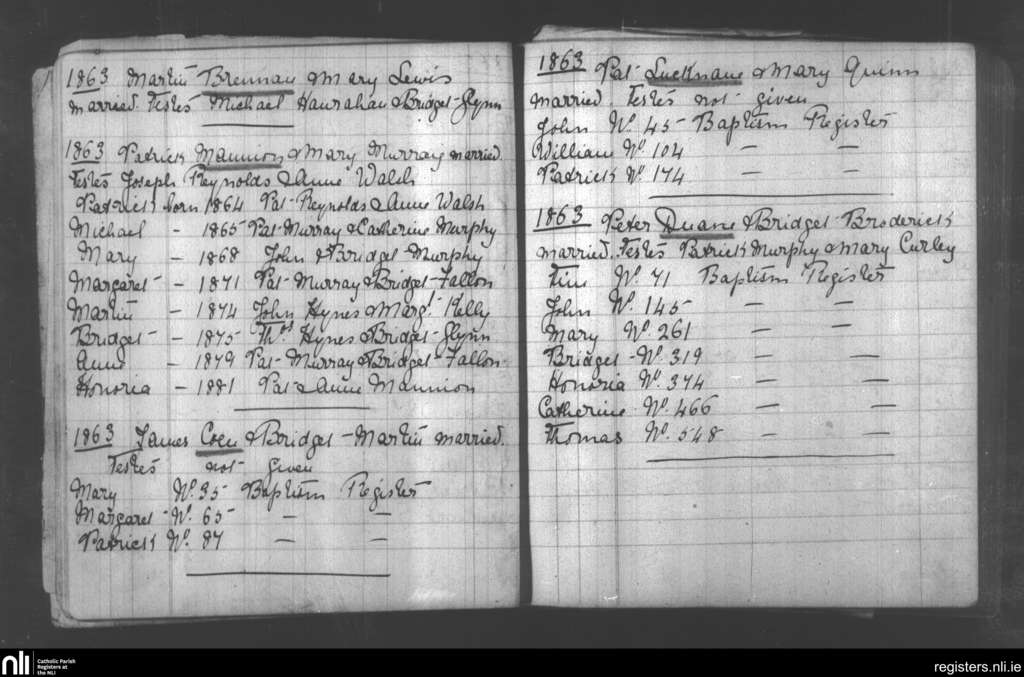 1863 Martin Brennan & Mary Lewis
married. Testes Michael Hanrahan & Bridget Glynn
1863 Patrick Mannion & Mary Murray married.
Testes Joseph Reynolds & Anne Walsh
Patrick born 1864 Pat Reynolds & Anne Walsh
Michael - 1865 Pat Murray & Catherine Murphy
Mary - 1868 John & Bridget Murphy
Margaret - 1871 Pat Murray & Bridget Fallon
Martin - 1874 John Hynes & Margt. Kelly
Bridget - 1875 Thos Hynes & Bridget Glynn
Anne - 1879 Pat Murray & Bridget Fallon
Honoria - 1881 Pat & Anne Mannion
1863 James Coen & Bridget Martin married.
Testes not given
Mary No. 35 Baptism Register
Margaret No. 65 — —
Patrick No. 87 — —
1863 Pat Lucknane & Mary Quinn
married. Testes not given
John No. 45 Baptism Register
William No. 104 — —
Patrick No. 174 — —
1863 Peter Duane & Bridget Broderick
married. Testes Patrick Murphy & Mary Curley
No. 71 Baptism Register
John No. 145 — —
Mary No. 261 — —
Bridget No. 319 — —
Honoria No. 374 — —
Catherine No. 466 — —
Thomas No. 548 — —
nli Catholic Parish
Registers at
the NLI
registers.nli.ie